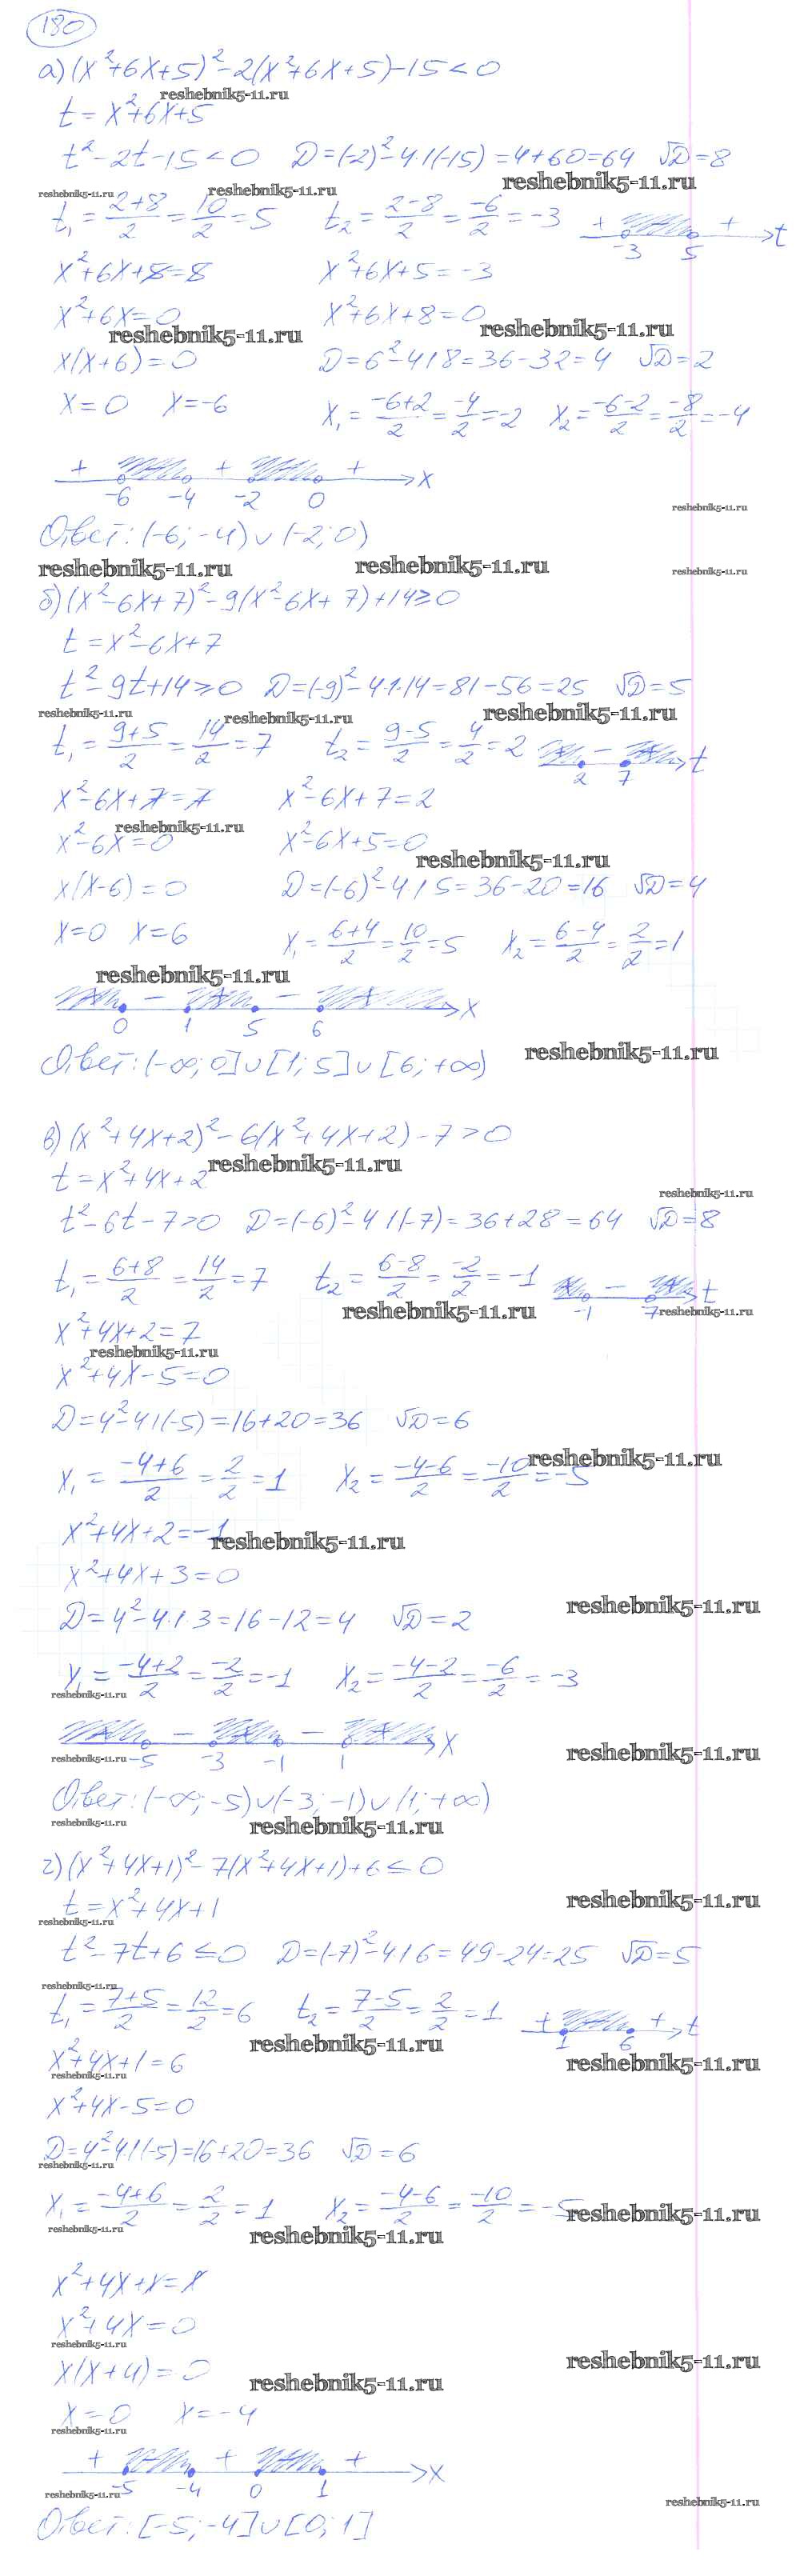 180
а) (x²+6x+5)²-2(x²+6x+5)-15<0
reshebnik5-11.ru
t=x²+6x+5
t²-2t-15<0 D=(-2)²-4·1(-15)=4+60=64 √D=8
reshebnik5-11.ru reshebnik5-11.ru reshebnik5-11.ru
t₁=(2+8)/2=10/2=5 t₂=(2-8)/2=-6/2=-3 + + t
-3 5
x²+6x+5=5 x²+6x+5=-3
x²+6x=0 x²+6x+8=0
reshebnik5-11.ru reshebnik5-11.ru
x(x+6)=0 D=6²-4·1·8=36-32=4 √D=2
x=0 x=-6 x₁=(-6+2)/2=-4/2=-2 x₂=(-6-2)/2=-8/2=-4
+ + + x
-6 -4 -2 0
reshebnik5-11.ru
Ответ: (-6;-4)∪(-2;0)
reshebnik5-11.ru reshebnik5-11.ru reshebnik5-11.ru
б) (x²-6x+7)²-9(x²-6x+7)+14≥0
t=x²-6x+7
t²-9t+14≥0 D=(-9)²-4·1·14=81-56=25 √D=5
reshebnik5-11.ru reshebnik5-11.ru reshebnik5-11.ru
t₁=(9+5)/2=14/2=7 t₂=(9-5)/2=4/2=2 - t
2 7
x²-6x+7=7 x²-6x+7=2
reshebnik5-11.ru
x²-6x=0 x²-6x+5=0
reshebnik5-11.ru
x(x-6)=0 D=(-6)²-4·1·5=36-20=16 √D=4
x=0 x=6 x₁=(6+4)/2=10/2=5 x₂=(6-4)/2=2/2=1
reshebnik5-11.ru
- - x
0 1 5 6
reshebnik5-11.ru
Ответ: (-∞;0]∪[1;5]∪[6;+∞)
в) (x²+4x+2)²-6(x²+4x+2)-7>0
reshebnik5-11.ru
t=x²+4x+2
reshebnik5-11.ru
t²-6t-7>0 D=(-6)²-4·1(-7)=36+28=64 √D=8
t₁=(6+8)/2=14/2=7 t₂=(6-8)/2=-2/2=-1 - t
-1 7
reshebnik5-11.ru reshebnik5-11.ru
x²+4x+2=7
reshebnik5-11.ru
x²+4x-5=0
D=4²-4·1(-5)=16+20=36 √D=6
reshebnik5-11.ru
x₁=(-4+6)/2=2/2=1 x₂=(-4-6)/2=-10/2=-5
x²+4x+2=-1
reshebnik5-11.ru
x²+4x+3=0
reshebnik5-11.ru
D=4²-4·1·3=16-12=4 √D=2
x₁=(-4+2)/2=-2/2=-1 x₂=(-4-2)/2=-6/2=-3
reshebnik5-11.ru
- - x
reshebnik5-11.ru -5 -3 -1 1 reshebnik5-11.ru
Ответ: (-∞;-5)∪(-3;-1)∪(1;+∞)
reshebnik5-11.ru reshebnik5-11.ru
г) (x²+4x+1)²-7(x²+4x+1)+6≤0
reshebnik5-11.ru
t=x²+4x+1
reshebnik5-11.ru
t²-7t+6≤0 D=(-7)²-4·1·6=49-24=25 √D=5
reshebnik5-11.ru
t₁=(7+5)/2=12/2=6 t₂=(7-5)/2=2/2=1 + + t
1 6
reshebnik5-11.ru
x²+4x+1=6
reshebnik5-11.ru reshebnik5-11.ru
x²+4x-5=0
D=4²-4·1(-5)=16+20=36 √D=6
reshebnik5-11.ru
x₁=(-4+6)/2=2/2=1 x₂=(-4-6)/2=-10/2=-5
reshebnik5-11.ru
reshebnik5-11.ru reshebnik5-11.ru
x²+4x+1=1
x²+4x=0
reshebnik5-11.ru
reshebnik5-11.ru
x(x+4)=0
reshebnik5-11.ru
x=0 x=-4
reshebnik5-11.ru
+ + + x
reshebnik5-11.ru -5 -4 0 1 reshebnik5-11.ru
Ответ: [-5;-4]∪[0;1]